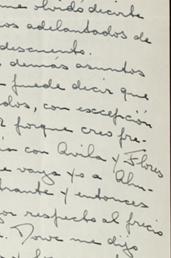 me olvidó decirte
os adelantados de
descuento.
s demás asuntos
puede decir que
dos, con escepción
porque creo fre-
is con Avila y Flores
e vaya yo a Alm-
hante y entonces
or respecto al fricio
s. Dowe me dijo